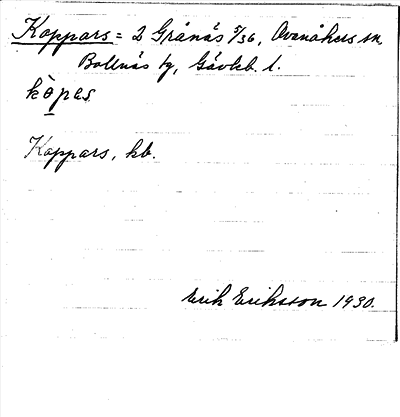 Koppars = 2 Grånäs 5/36, Ovanåkers sn,
Bollnäs tg, Gävleb. l.
kòpas
Koppars, kb.
Erik Eriksson 1930.